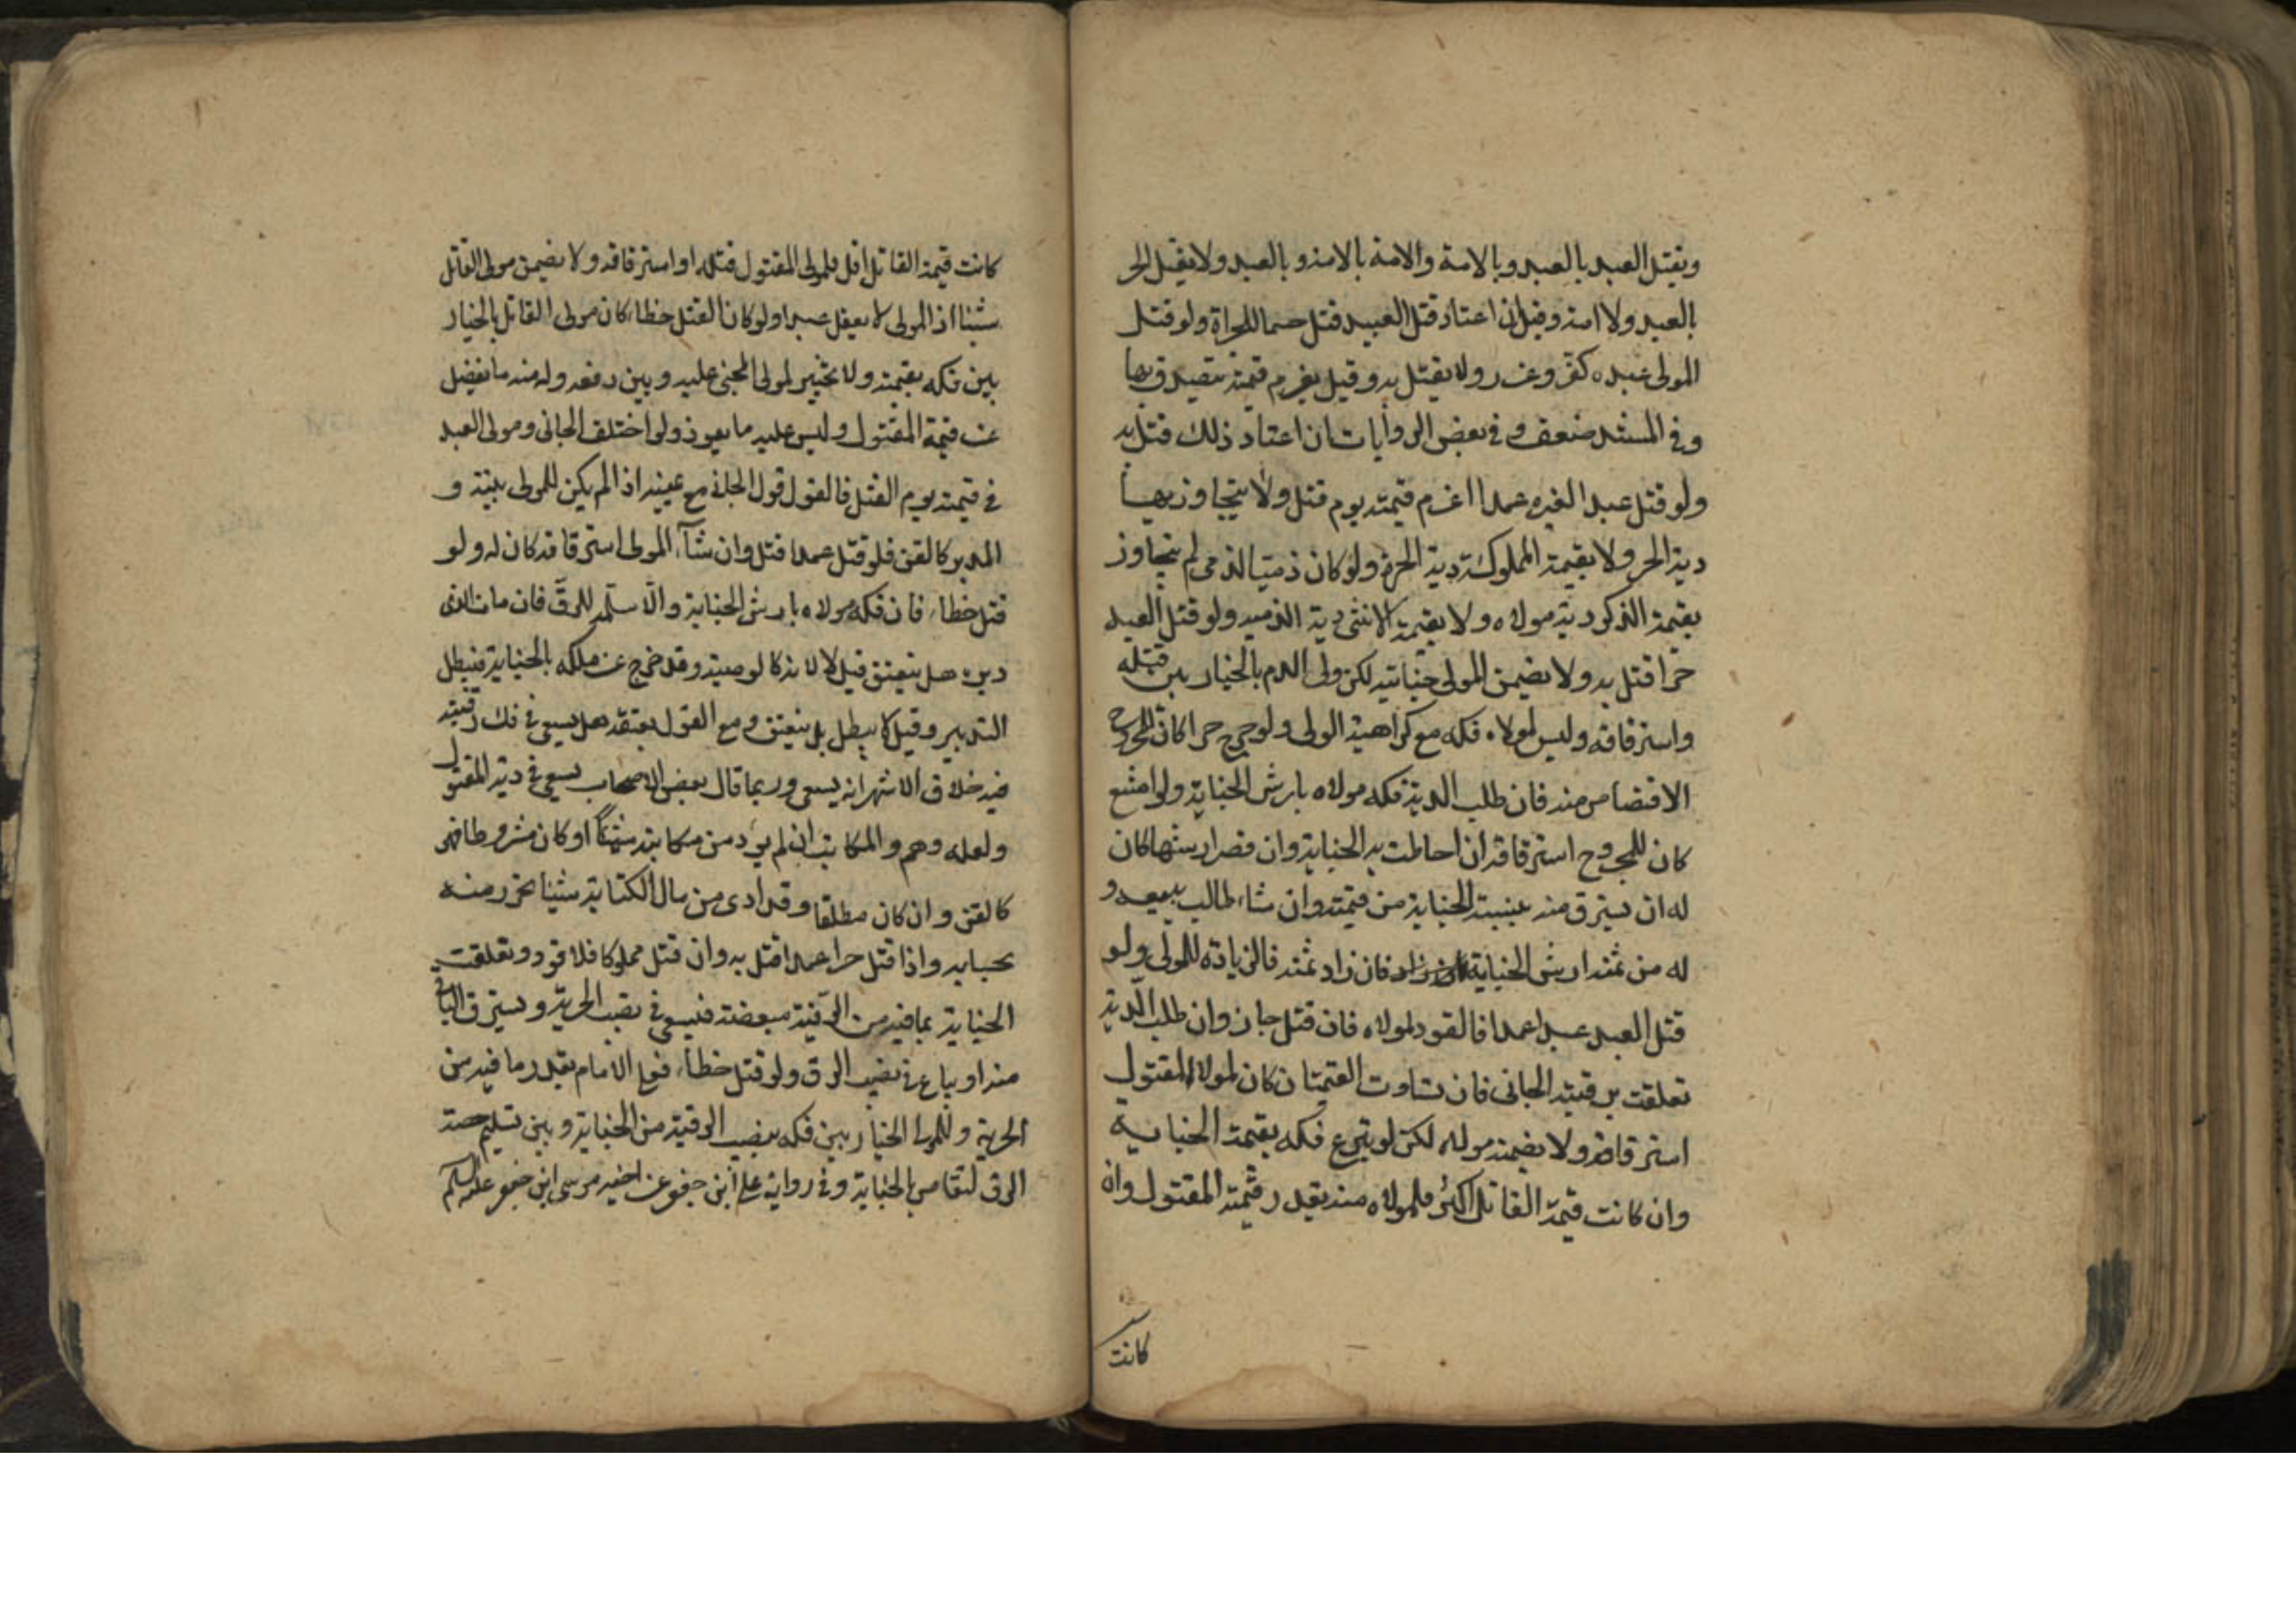 ويقتل العبد بالعبد وبالامة والامة بالامة وبالعبد ولا يقتل الحر
بالعبد ولا امة وقيل ان اعتاد قتل العبيد قتل حسما للجراة ولو قتل
المولى عبده كفر وعزر ولا يقتل به وقيل يغرم قيمته يتصدق بها
وفي المستند ضعف وفي بعض الروايات ان اعتاد ذلك قتل به
ولو قتل عبدا لغيره عمدا اغرم قيمته يوم قتل ولا يتجاوز بها
دية الحر ولا بقيمة المملوكة دية الحرة ولو كان ذميا لذمي لم يتجاوز
بقيمة الذكر دية مولاه ولا بقيمة الانثى دية الذمية ولو قتل العبد
حرا قتل به ولا يضمن المولى جنايته لكن ولى الدم بالخيار بين قتله
واسترقاقه وليس لمولاه فكه مع كراهية الولى ولو جرح حرا كان للمجروح
الاقتصاص منه فان طلب الدية فكه مولاه بارش الجناية ولو امتنع
كان للمجروح استرقاقه ان احاطت به الجناية وان قصر ارشها كان
له ان يسترق منه بنسبة الجناية من قيمته وان شاء طالب ببيعه و
له من ثمنه ارش الجناية فان زاد ثمنه فالزيادة للمولى ولو
قتل العبد عبدا عمدا فالقود لمولاه فان قتل جاز وان طلب الدية
تعلقت برقبة الجانى فان تساوت القيمتان كان لمولا المقتول
استرقاقه ولا يضمنه مولاه لكن لو تبرع فكه بقيمة الجناية
وان كانت قيمة القاتل اكثر فلمولاه منه بقدر قيمة المقتول وان
كانت
كانت قيمة القاتل اقل فلمولى المقتول قتله او استرقاقه ولا يضمن مولى القاتل
شيئا اذ المولى لا يعقل عبدا ولو كان القتل خطا كان مولى القاتل بالخيار
بين فكه بقيمته ولا تخيير لمولى المجنى عليه وبين دفعه وله منه ما يفضل
عن قيمة المقتول وليس عليه ما يعوز ولو اختلف الجانى ومولى العبد
في قيمته يوم القتل فالقول قول الجاني مع يمينه اذا لم يكن للمولى بينة و
المدبر كالقن فلو قتل عمدا قتل وان شآء المولى استرقاقه كان له ولو
قتل خطاء فان فكه مولاه بارش الجناية والا سلمه للرق فان مات الذى
دبره هل ينعتق قيل لا لانه كالوصية وقد خرج عن ملكه بالجناية فيبطل
التدبير وقيل لا يبطل بل ينعتق ومع القول بعتقه هل يسعى في فك رقبته
فيه خلاف الاشهر انه يسعى وربما قال بعض الاصحاب يسعى في دية المقتول
ولعله وهم والمكاتب ان لم يؤد من مكاتبته شيئا او كان مشروطا فهو
كالقن وان كان مطلقا وقد ادى من مال الكتابة شيئا تحرر منه
بحسابه واذا قتل حرا عمدا قتل به وان قتل مملوكا فلا قود وتعلقت
الجناية بما فيه من الرقية مبعضة فيسعى في نصيب الحرية ويسترق الباقي
منه او يباع في نصيب الرق ولو قتل خطاء فعلى الامام بقدر ما فيه من
الحرية وللمولى الخيار بين فكه بنصيب الرقية من الجناية وبين تسليم حصة
الرق لتقاص بالجناية وفي رواية على ابن جعفر عن اخيه موسى ابن جعفر عليه السلم